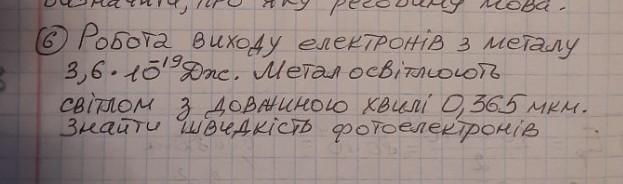 визначити, про яку речовину мова.
6 Робота виходу електронів з металу
3,6・10⁻¹⁹ Дж. Метал освітлюють
світлом з довжиною хвилі 0,365 мкм.
Знайти швидкість фотоелектронів